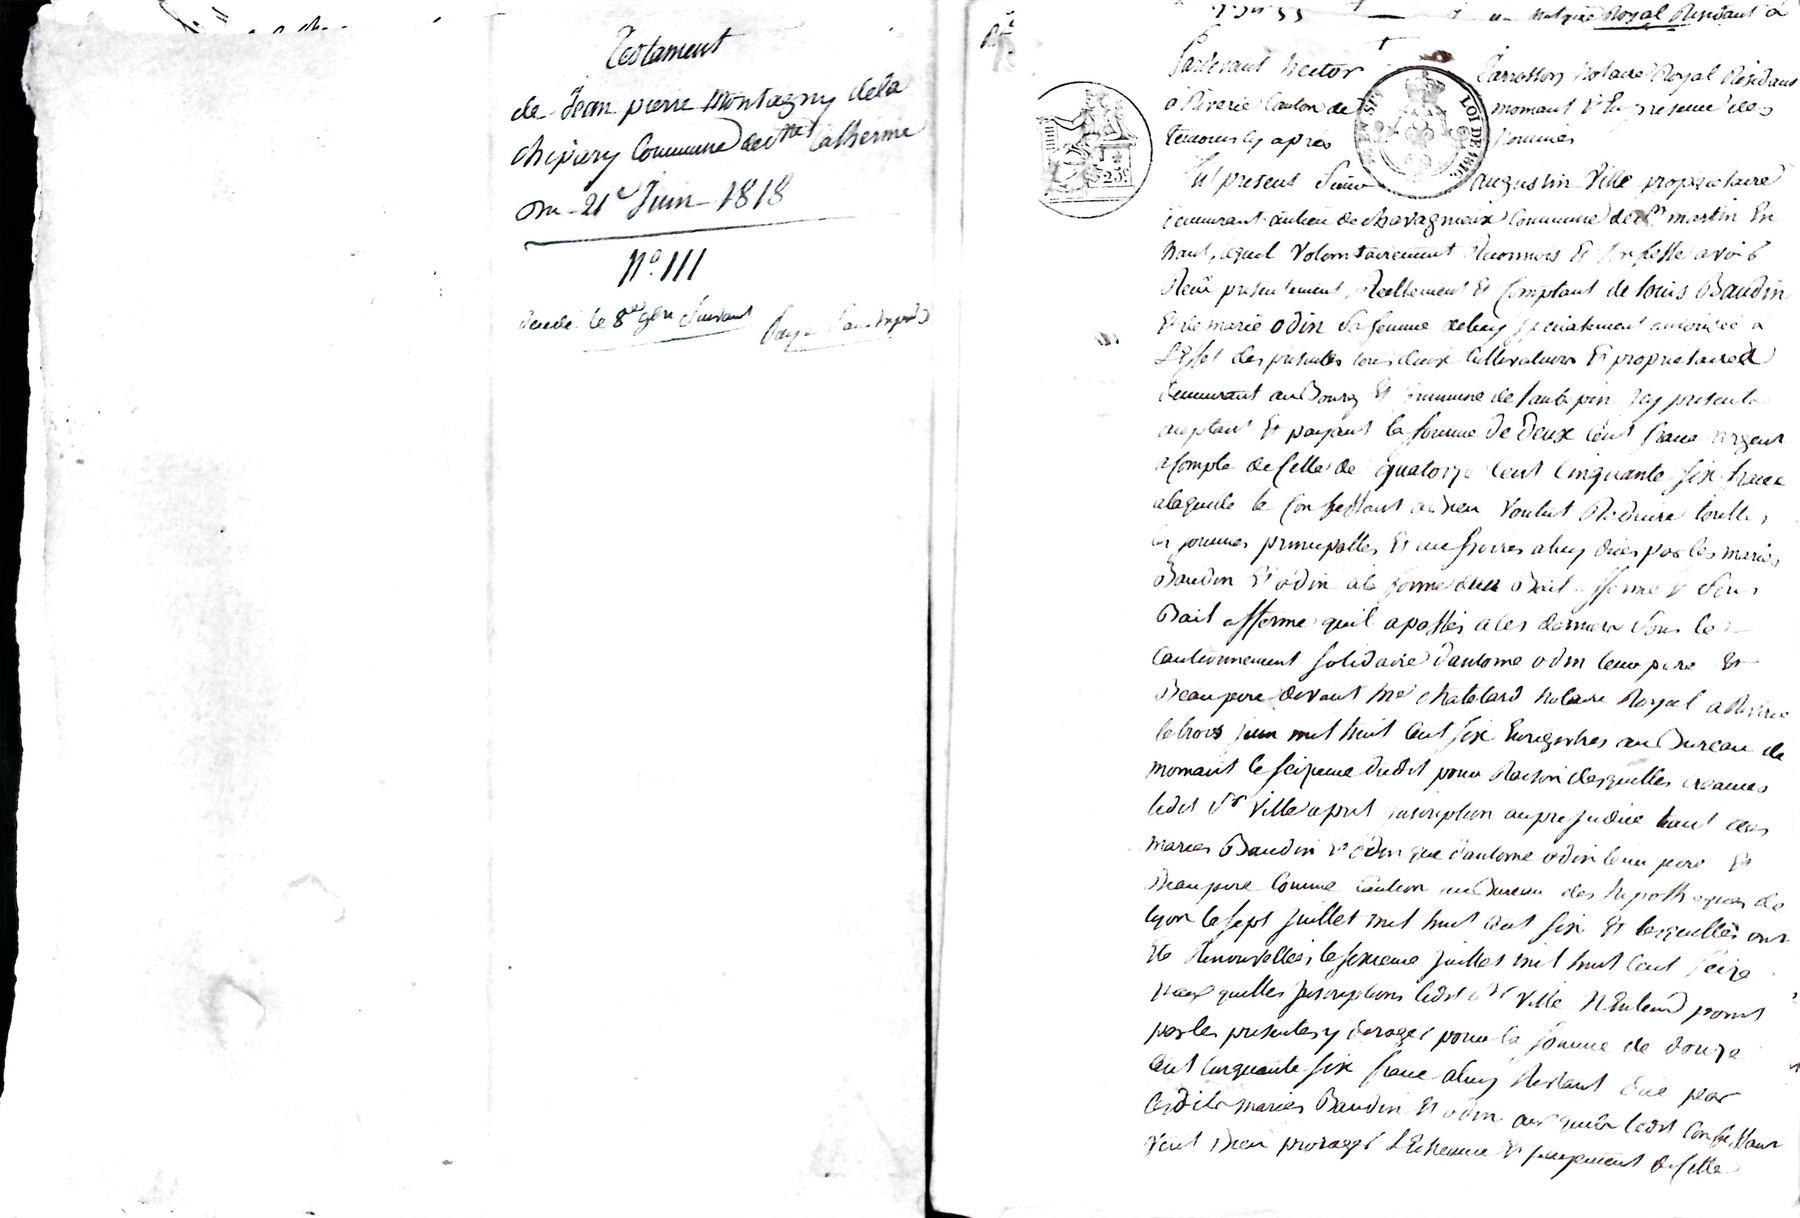 Testament
de Jean pierre Montagny dela
chipiery Commune de Ste Catherine
Du 21e Juin 1818
N° 111
décédé le 8e 9bre Suivant
notaire Royal Residant à
Pardevant hector Jarrosson Notaire Royal Residant
à Riverie Canton de mornant & En presence des
temoins cy après nommés
fut present Sieur augustin Ville propriétaire
demeurant au lieu de chavagnieux Commune de St martin En
haut, lequel volontairement Reconnois Et Confesse avoir
Reçu presentement, Reellement Et Comptant de louis Baudin
Et de marie odin Sa femme de luy specialement autorisée à
L'Effet des presentes tous deux Cultivateurs Et proprietaires
demeurant au Bourg Et Commune de Laubepin icy presents
acceptant Et payant la somme de Deux Cent franc argent
a Compte de Celle de quatorze Cent Cinquante six franc
a laquelle le Confessant a bien voulut Reduire toutes
les sommes principalles Et accessoires a luy dües par les mariés
Baudin Et odin à la forme d'un Bail afferme & Sous
Bail afferme quil a passés a ces derniers Sous le
Cautionnement Solidaire d'antoine odin leur pere Et
Beaupere devant Me chatelard Notaire Royal a Riverie
le trois juin mil huit Cent six Enregistrés au Bureau de
mornant le seizieme dudit pour Raison desquelles creances
ledit Sr Ville a prit inscription au prejudice tant des
mariés Baudin & odin que d'antoine odin leur pere Et
Beaupere Comme Caution au Bureau des hypotheques de
lyon le sept juillet mil huit Cent six Et lesquelles ont
Eté Renouvellées le sixieme juillet mil huit Cent seize
auxquelles inscriptions ledit Sr Ville N'Entend point
par les presentes y deroger pour la somme de douze
Cent Cinquante six franc a luy Restant düe par
lesdits mariés Baudin Et odin auxquels ledit Confessant
veut Bien proroger L'Echeance & payement de Celle
LOI DE 1816
25c